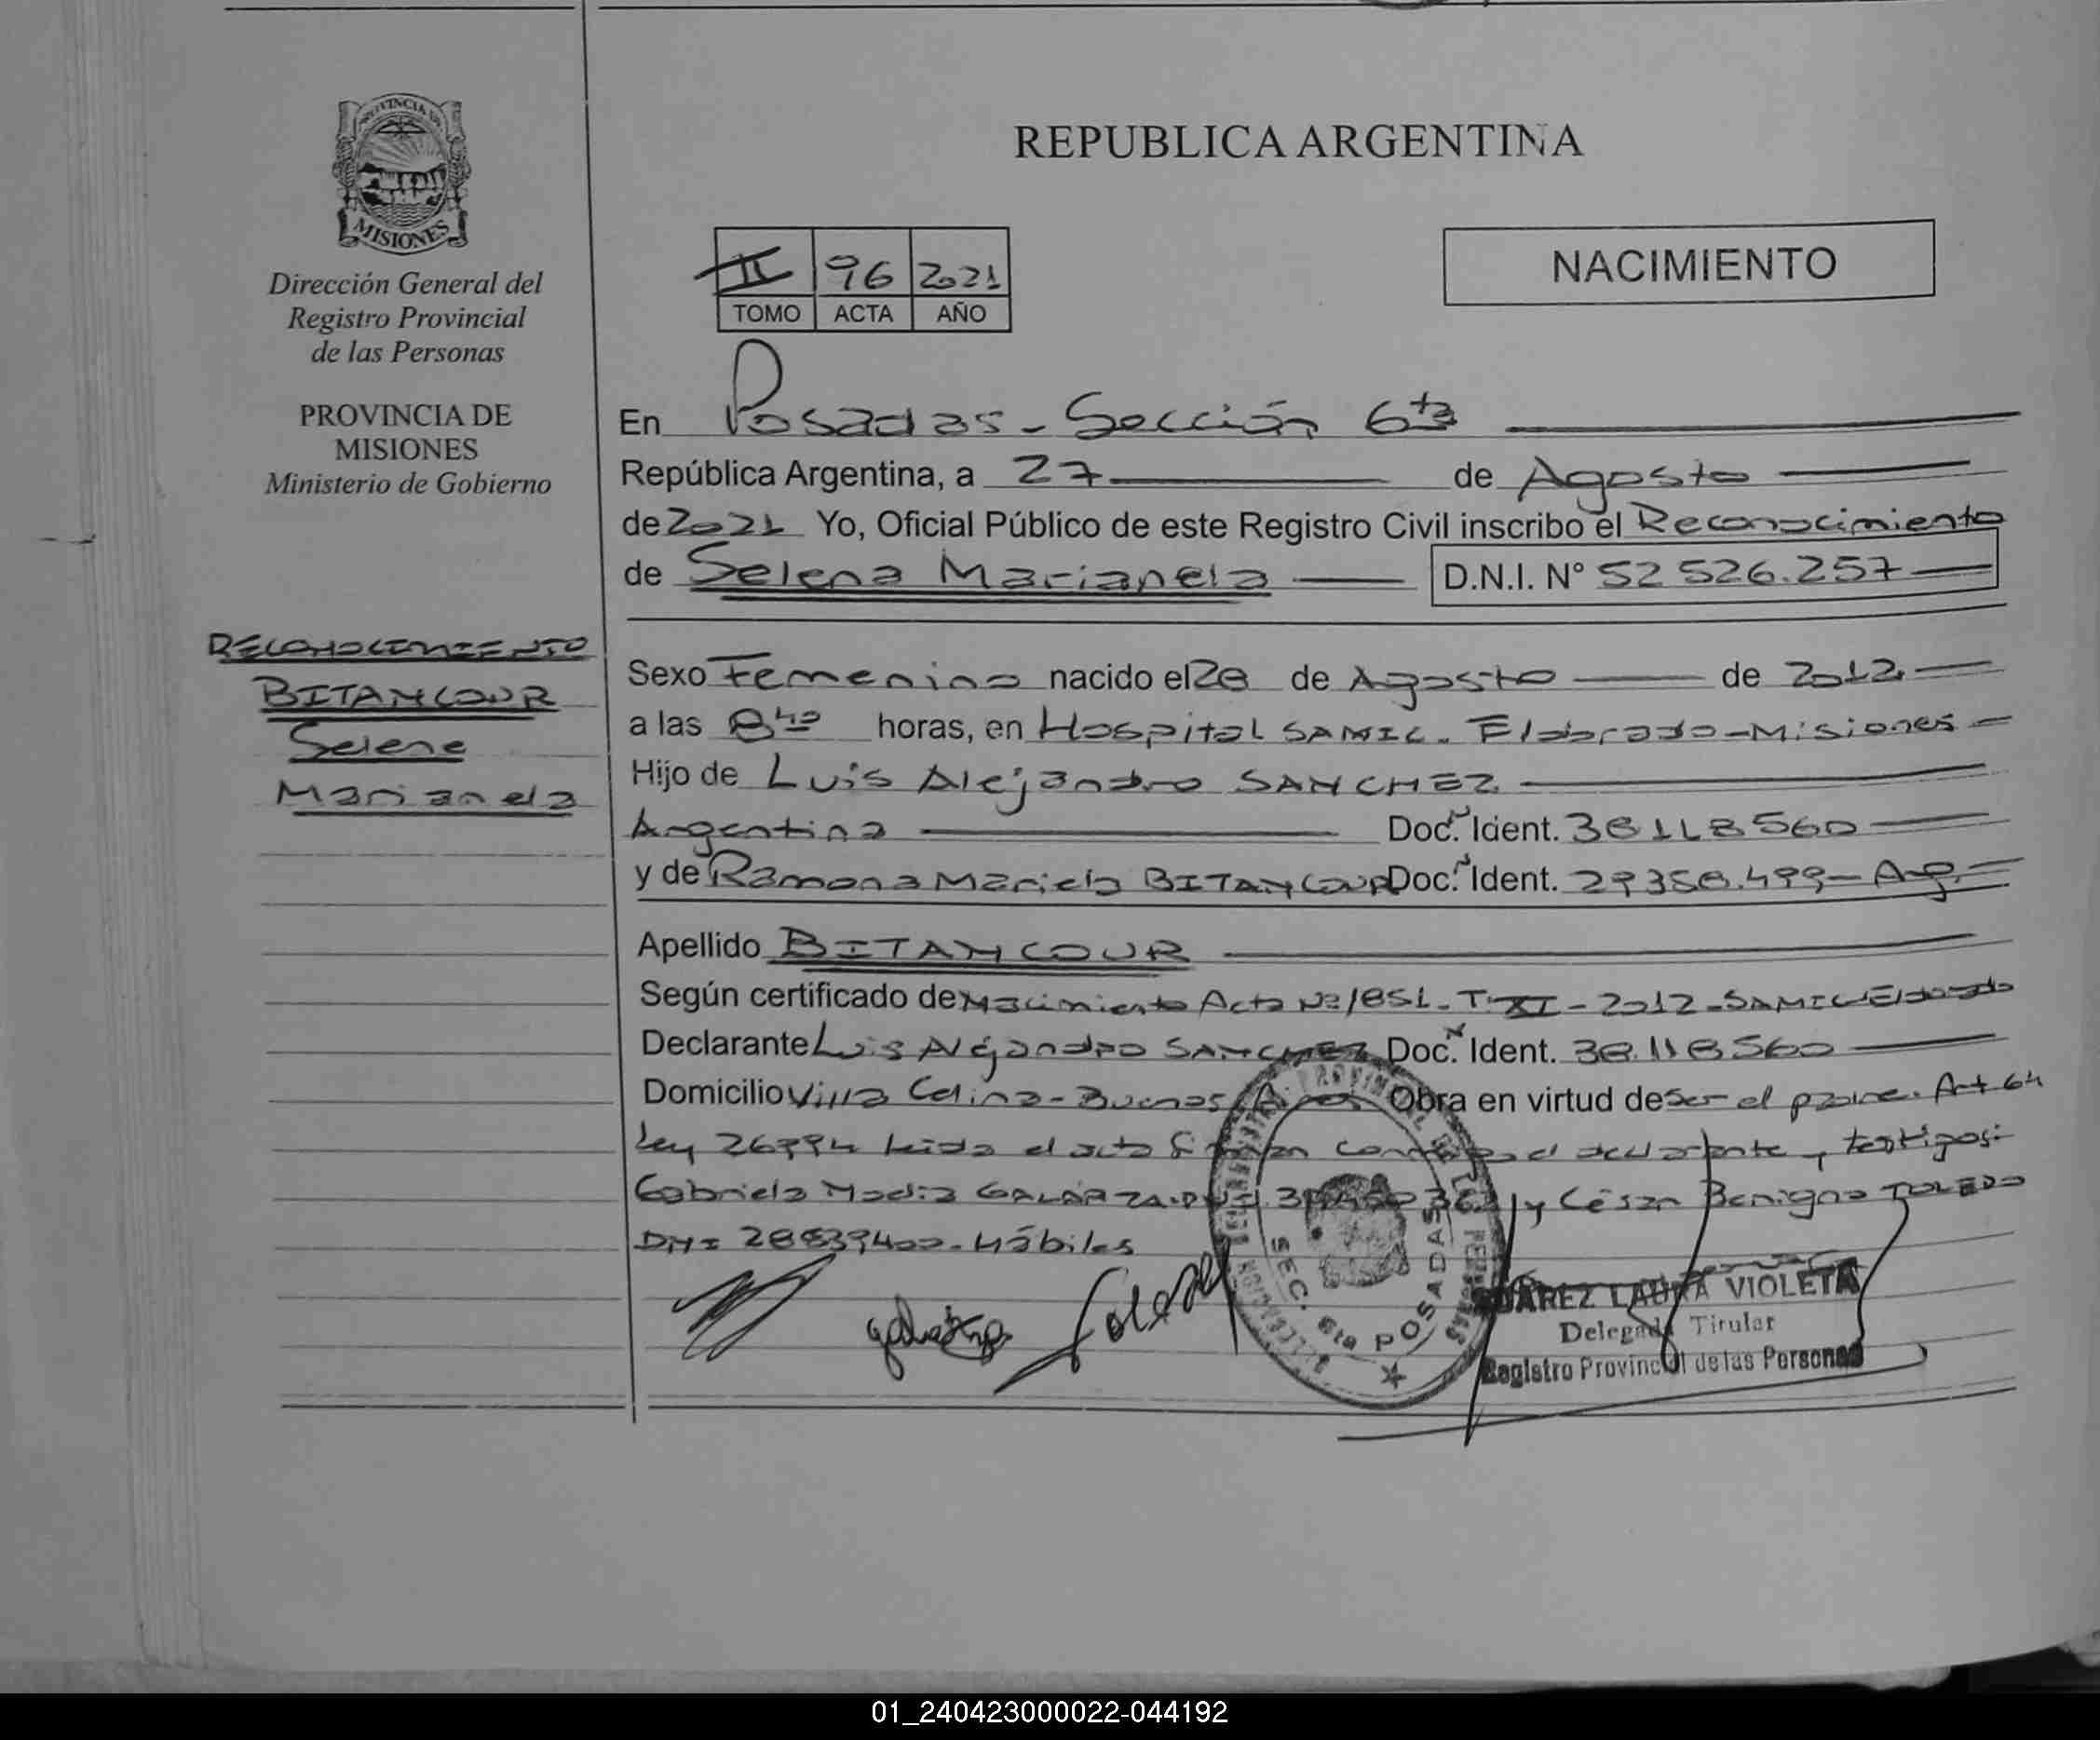 PROVINCIA DE
MISIONES
Dirección General del
Registro Provincial
de las Personas
PROVINCIA DE
MISIONES
Ministerio de Gobierno
RECONOCIMIENTO
BITANCOUR
Selena
Marianela
REPUBLICA ARGENTINA
II 96 2021
TOMO ACTA AÑO
NACIMIENTO
En Posadas - Sección 6ta
República Argentina, a 27 de Agosto
de 2021 Yo, Oficial Público de este Registro Civil inscribo el Reconocimiento
de Selena Marianela D.N.I. N° 52 526.257
Sexo Femenino nacido el 28 de Agosto de 2012
a las 8 horas, en Hospital SAMIC. Eldorado-Misiones
Hijo de Luis Alejandro SANCHEZ
Argentina Doc. Ident. 38118560
y de Ramona Mariela BITANCOUR Doc. Ident. 29358.499 - Arg.
Apellido BITANCOUR
Según certificado de Nacimiento Acta Nº 1851 - T. XI - 2012 - SAMIC Eldorado
Declarante Luis Alejandro SANCHEZ Doc. Ident. 38.118560
Domicilio Villa Celina - Buenos Aires Obra en virtud de ser el padre. Art 64
Ley 26994 Leida el acta firman conmigo el declarante y testigos:
Gabriela GALARZA. DNI y César Benigno TOLEDO
DNI 28839400 - Hábiles
SEC. 6ta POSADAS
SUAREZ LAURA VIOLETA
Delegada Titular
Registro Provincial de las Personas
01_240423000022-044192